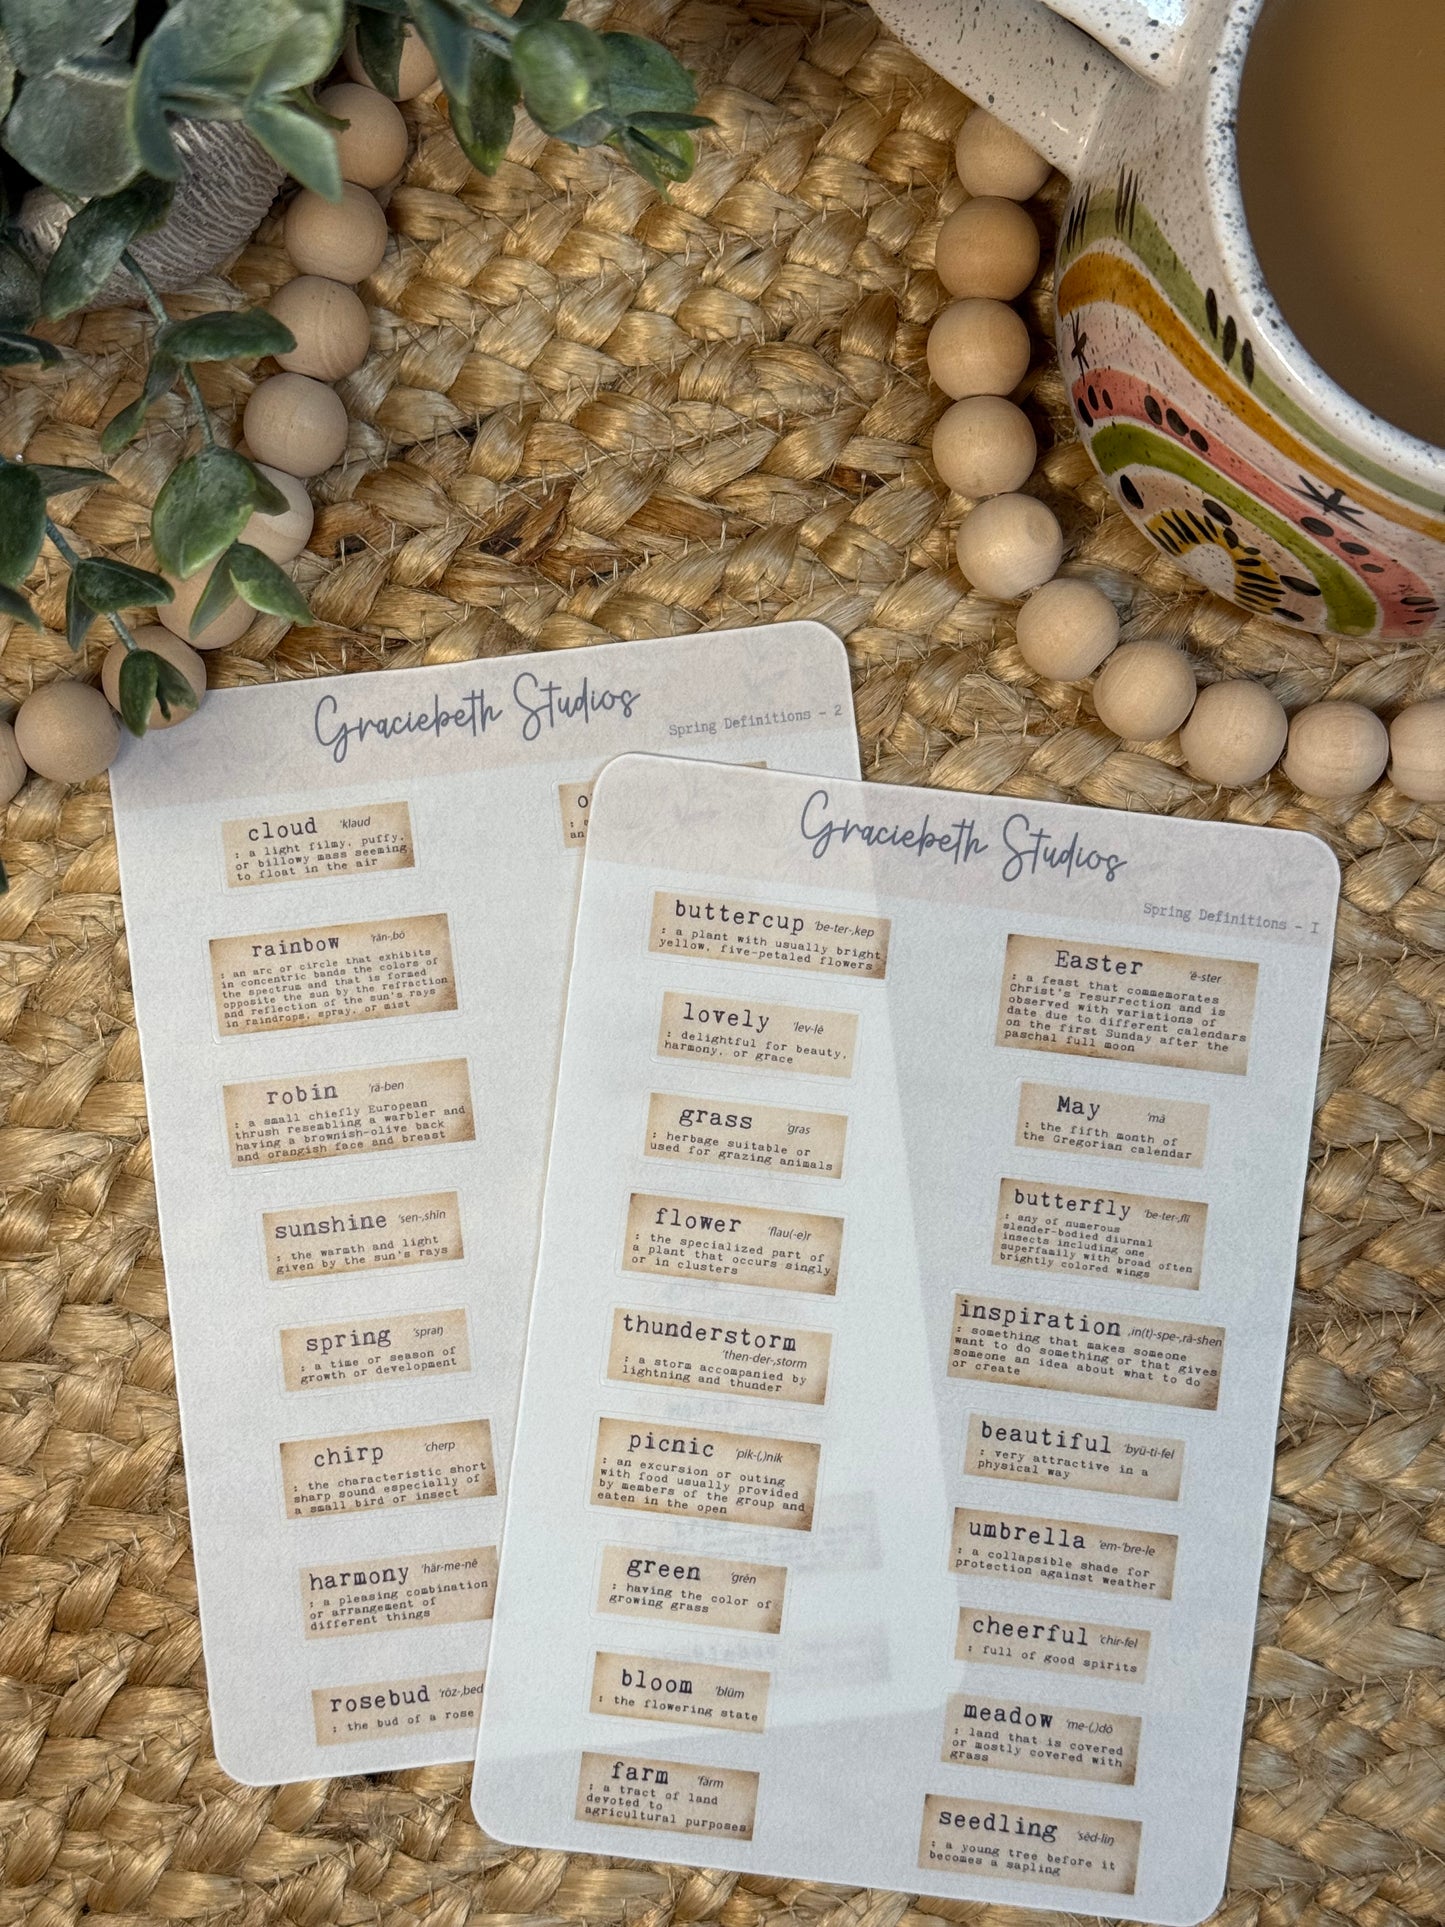 Graciebeth Studios
Spring Definitions - 2
cloud 'klaud
: a light filmy, puffy,
or billowy mass seeming
to float in the air
rainbow 'rān-,bō
: an arc or circle that exhibits
in concentric bands the colors of
the spectrum and that is formed
opposite the sun by the refraction
and reflection of the sun's rays
in raindrops, spray, or mist
robin 'rä-ben
: a small chiefly European
thrush resembling a warbler and
having a brownish-olive back
and orangish face and breast
sunshine 'sen-,shīn
: the warmth and light
given by the sun's rays
spring 'spraŋ
: a time or season of
growth or development
chirp 'cherp
: the characteristic short
sharp sound especially of
a small bird or insect
harmony 'här-me-nē
: a pleasing combination
or arrangement of
different things
rosebud 'rōz-,bed
: the bud of a rose
Graciebeth Studios
Spring Definitions - I
buttercup 'be-ter-,kep
: a plant with usually bright
yellow, five-petaled flowers
lovely 'lev-lē
: delightful for beauty,
harmony, or grace
grass 'gras
: herbage suitable or
used for grazing animals
flower 'flau(-e)r
: the specialized part of
a plant that occurs singly
or in clusters
thunderstorm
'then-der-,storm
: a storm accompanied by
lightning and thunder
picnic 'pik-(,)nik
: an excursion or outing
with food usually provided
by members of the group and
eaten in the open
green 'grēn
: having the color of
growing grass
bloom 'blüm
: the flowering state
farm 'färm
: a tract of land
devoted to
agricultural purposes
Easter 'ē-ster
: a feast that commemorates
Christ's resurrection and is
observed with variations of
date due to different calendars
on the first Sunday after the
paschal full moon
May 'mā
: the fifth month of
the Gregorian calendar
butterfly 'be-ter-,flī
: any of numerous
slender-bodied diurnal
insects including one
superfamily with broad often
brightly colored wings
inspiration ,in(t)-spe-,rā-shen
: something that makes someone
want to do something or that gives
someone an idea about what to do
or create
beautiful 'byü-ti-fel
: very attractive in a
physical way
umbrella 'em-'bre-le
: a collapsible shade for
protection against weather
cheerful 'chir-fel
: full of good spirits
meadow 'me-(,)dō
: land that is covered
or mostly covered with
grass
seedling 'sēd-liŋ
: a young tree before it
becomes a sapling